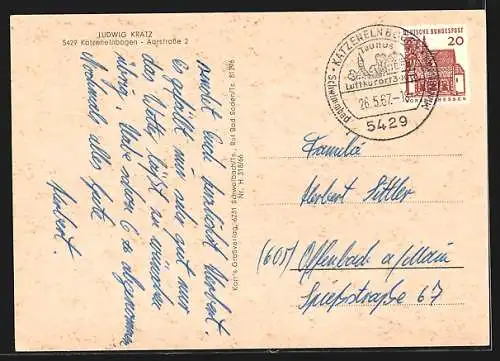 LUDWIG KRATZ
5429 Katzenelnbogen - Aarstraße 2
wünscht Euch
Herbert.
Es gefällt mir sehr gut nur
das Wetter läßt zu wünschen
übrig. Habe schon 6 abgenommen
Nochmals alles Gute
Herbert.
Kort's Großverlag, 6231 Schwalbach/Ts., Ruf Bad Soden/Ts. 81296
Nr. H 318/66
KATZENELNBOGEN
TAUNUS
Luftkurort
26.5.67
5429
DEUTSCHE BUNDESPOST
20
HESSEN
Familie
Herbert Sittler
(605) Offenbach a/Main
Spießstraße 67